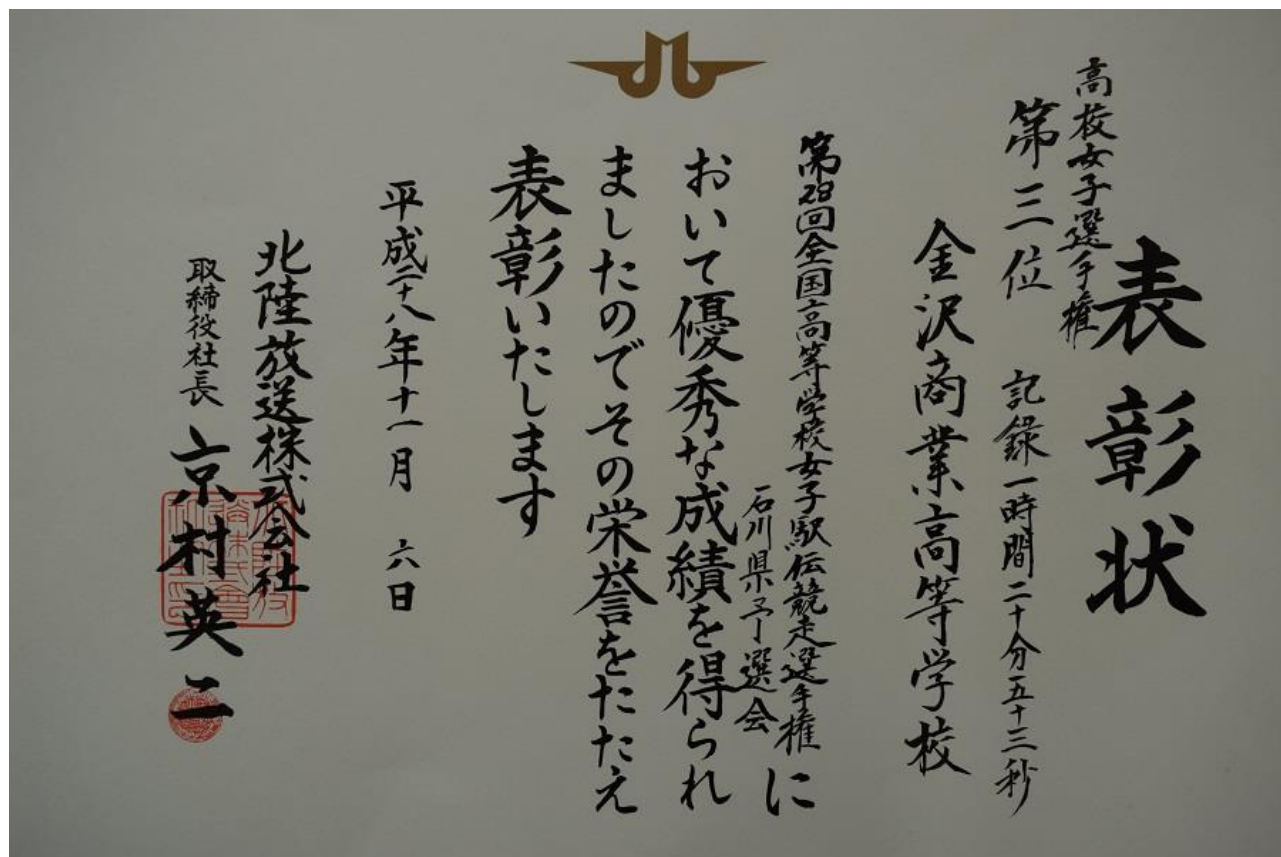 表彰状
高校女子選手権
第三位 記録一時間二十分五十三秒
金沢商業高等学校
第28回全国高等学校女子駅伝競走選手権
石川県予選会に
おいて優秀な成績を得られ
ましたのでその栄誉をたたえ
表彰いたします
平成二十八年十一月 六日
北陸放送株式会社
取締役社長 京村英二